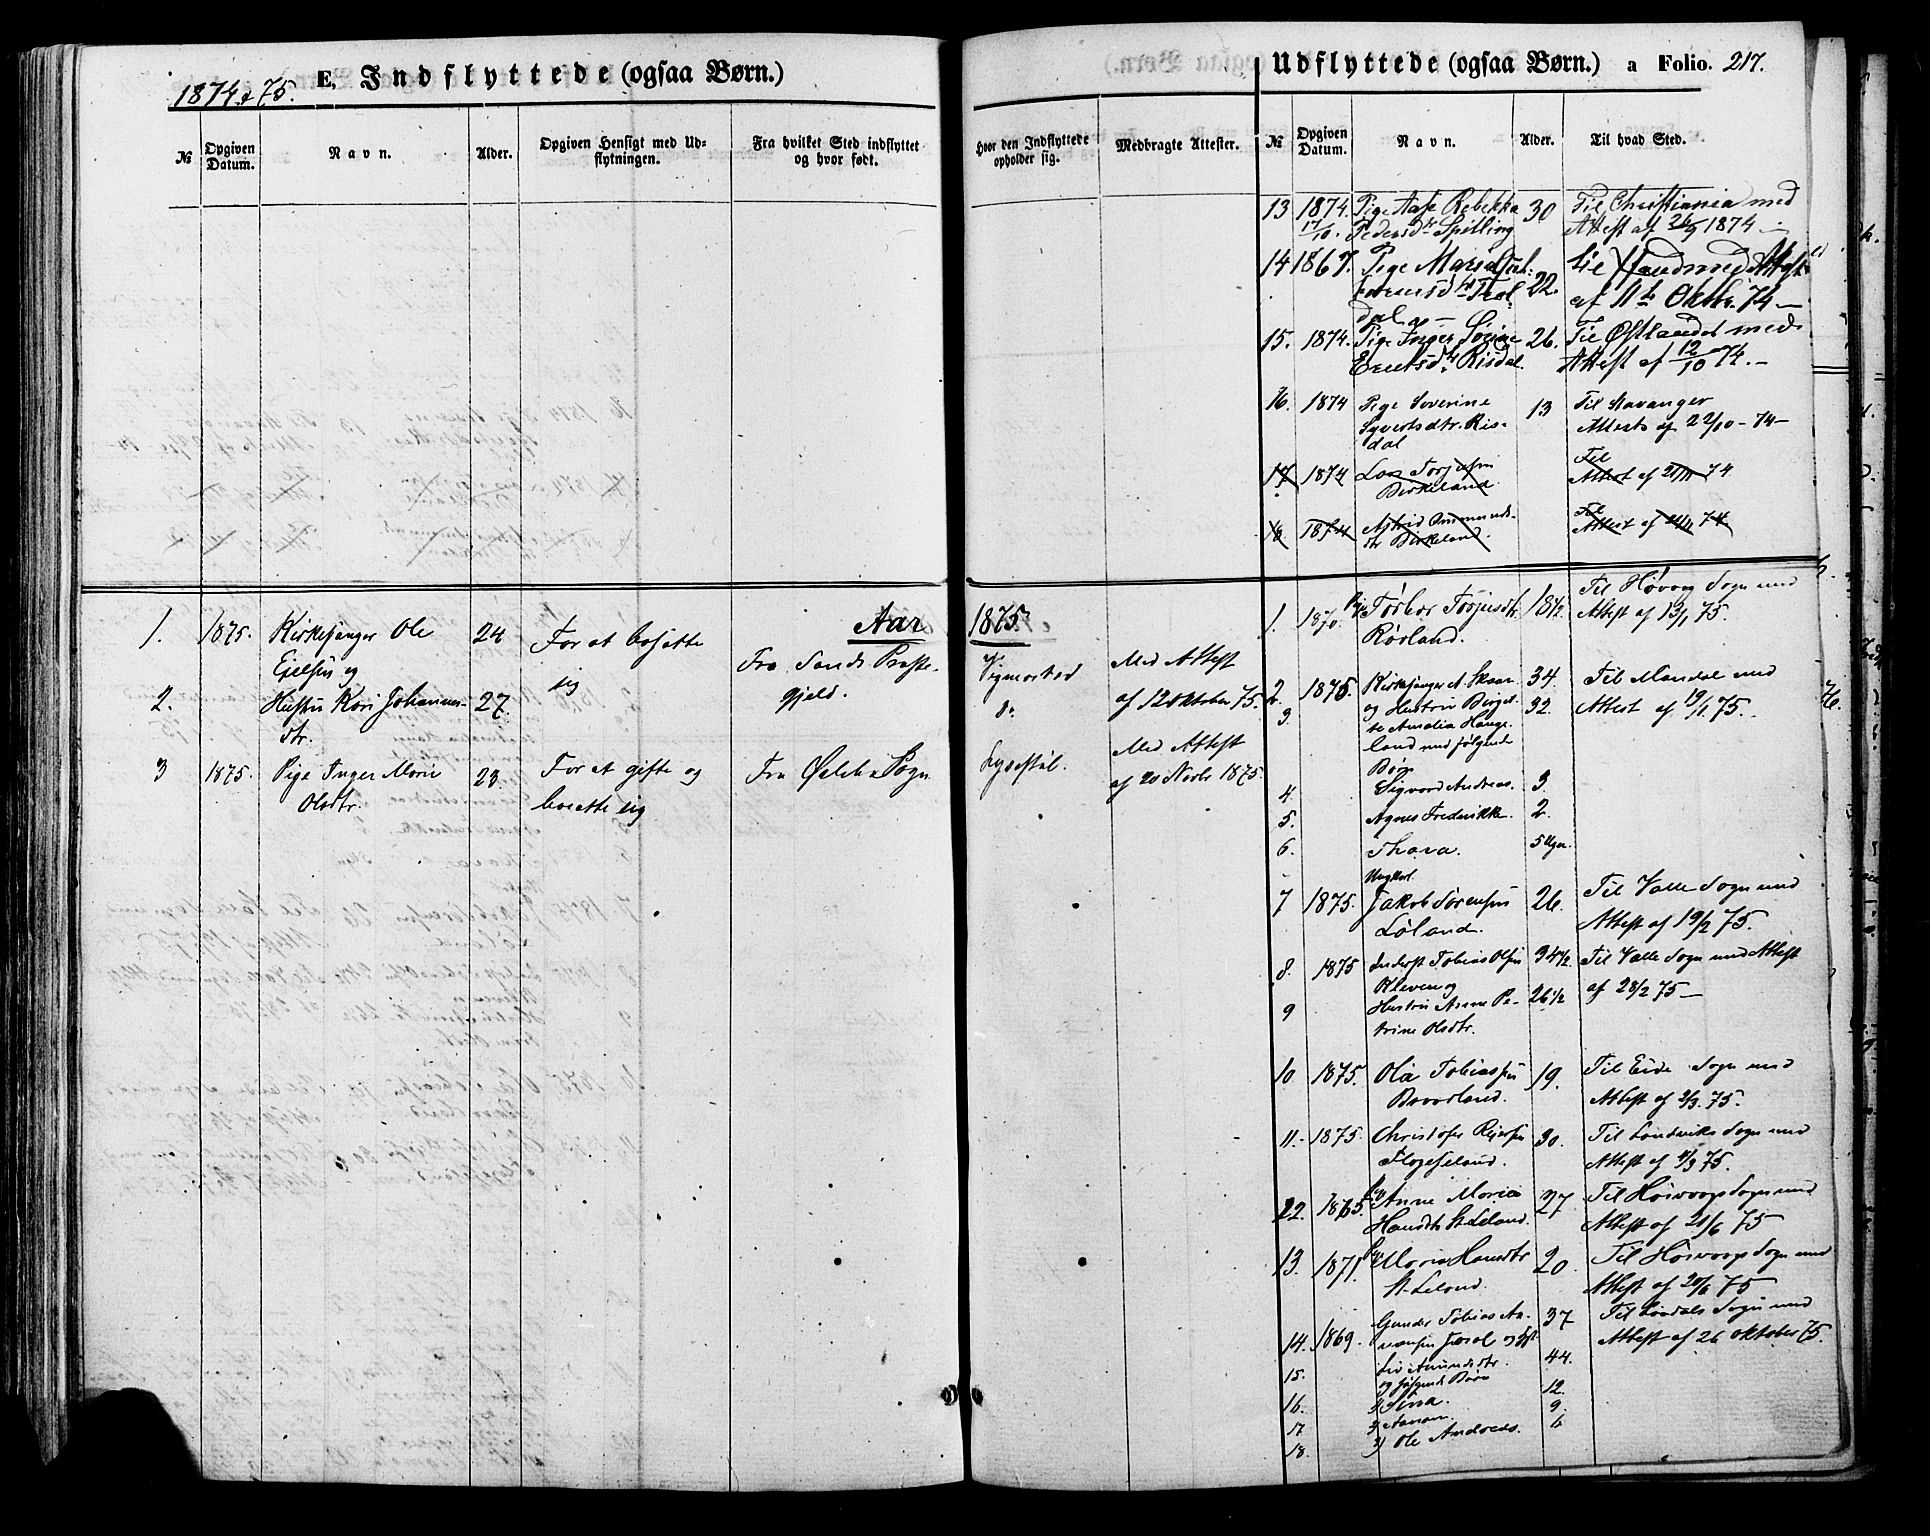 1874 & 75. E. Indflyttede (ogsaa Børn.)
№ Opgiven Datum. Navn. Alder. Opgiven Hensigt med Udflytningen. Fra hvilket Sted indflyttet og hvor født.
Aar
1. 1875. Kirkesanger Ole 24 For at bosætte Fra Sands Præste-
og sig gjeld.
2. Hustru Kari Johannes- 27.
dtr.
3 1875. Pige Inger Marie 23. For at gifte og Fra Sogn
Olsdtr. bosætte sig
Udflyttede (ogsaa Børn.) a Folio. 217.
Hvor den Indflyttede opholder sig. Medbragte Attester. № Opgiven Datum. Navn. Alder. Til hvad Sted.
13 1874. Pige Aase Rebekka 30 Til Christiania med
17/10. Pedersdtr Spilling Attest af 26/9 1874 —
14 1867. Pige Maria 22. med Attest
af 11te Oktbr. 74 —
dal
15. 1874. Pige Inger Sørine 26. Til Østlandet med
Risdal. Attest af 12/10 74. —
16. 1874 Pige Severine 13 Til Stavanger
Syvertsdtr. Ris- Attest af 22/10 - 74 —
dal
17 1874 Lars Torjusen Til
Birkeland Attest af 74
18. 1874 Astrid Ommunds- Til
dtr Birkeland. Attest af 74
1875.
1. 1870. Pige Torbor Torjusdtr. 18½. Til Høvog Sogn med
Rørland. Attest af 13/1 75.
Vigmostad Med Attest
do af 12 Oktober 75.
2. 1875. Kirkesanger A. Skaar 34. Til Mandal med
3. og Hustru Birgit- 32. Attest af 19/1 75.
te Amalia Hauge-
land med følgende
Børn
Med Attest
af 20 Novbr 1875.
4. Sigvard Andreas. 3.
5. Agnes Fredrikke. 2.
6. Thora. 5 Uger.
Ungkarl
7 1875. Jakob Sørensen 26. Til Valle Sogn med
Løland. Attest af 19/2 75.
8. 1875 Inderst Tobias Olsen 34½ Til Valle Sogn med Attest
Kleven og af 28/2 75 —
9 Hustru Anne Pe- 26½
trine Olsdtr.
10. 1875. Ola Tobiassen 19. Til Eide Sogn med
Attest af 2/3 75.
11. 1875. Christofer Reiersen 30. Til Landviks Sogn med
Attest af 4/3 75.
12. 1865. Anne Maria 27 Til Høivaags Sogn med
Hansdtr St. Leland. Attest af 20/6 75
13. 1871. Maria Hansdtr 20. Til Høivaags Sogn med
St. Leland. Attest af 20/6 75
14. 1869. Gunder Tobias Aa- 37 Til Sogn med
nonsen og Attest af 26 Oktober 75.
15. Liv Amundsdtr. 44.
og følgende Børn
16. 1) Sina. 12.
17 2) Aanon. 9.
18. 3) Ole Andreas. 6